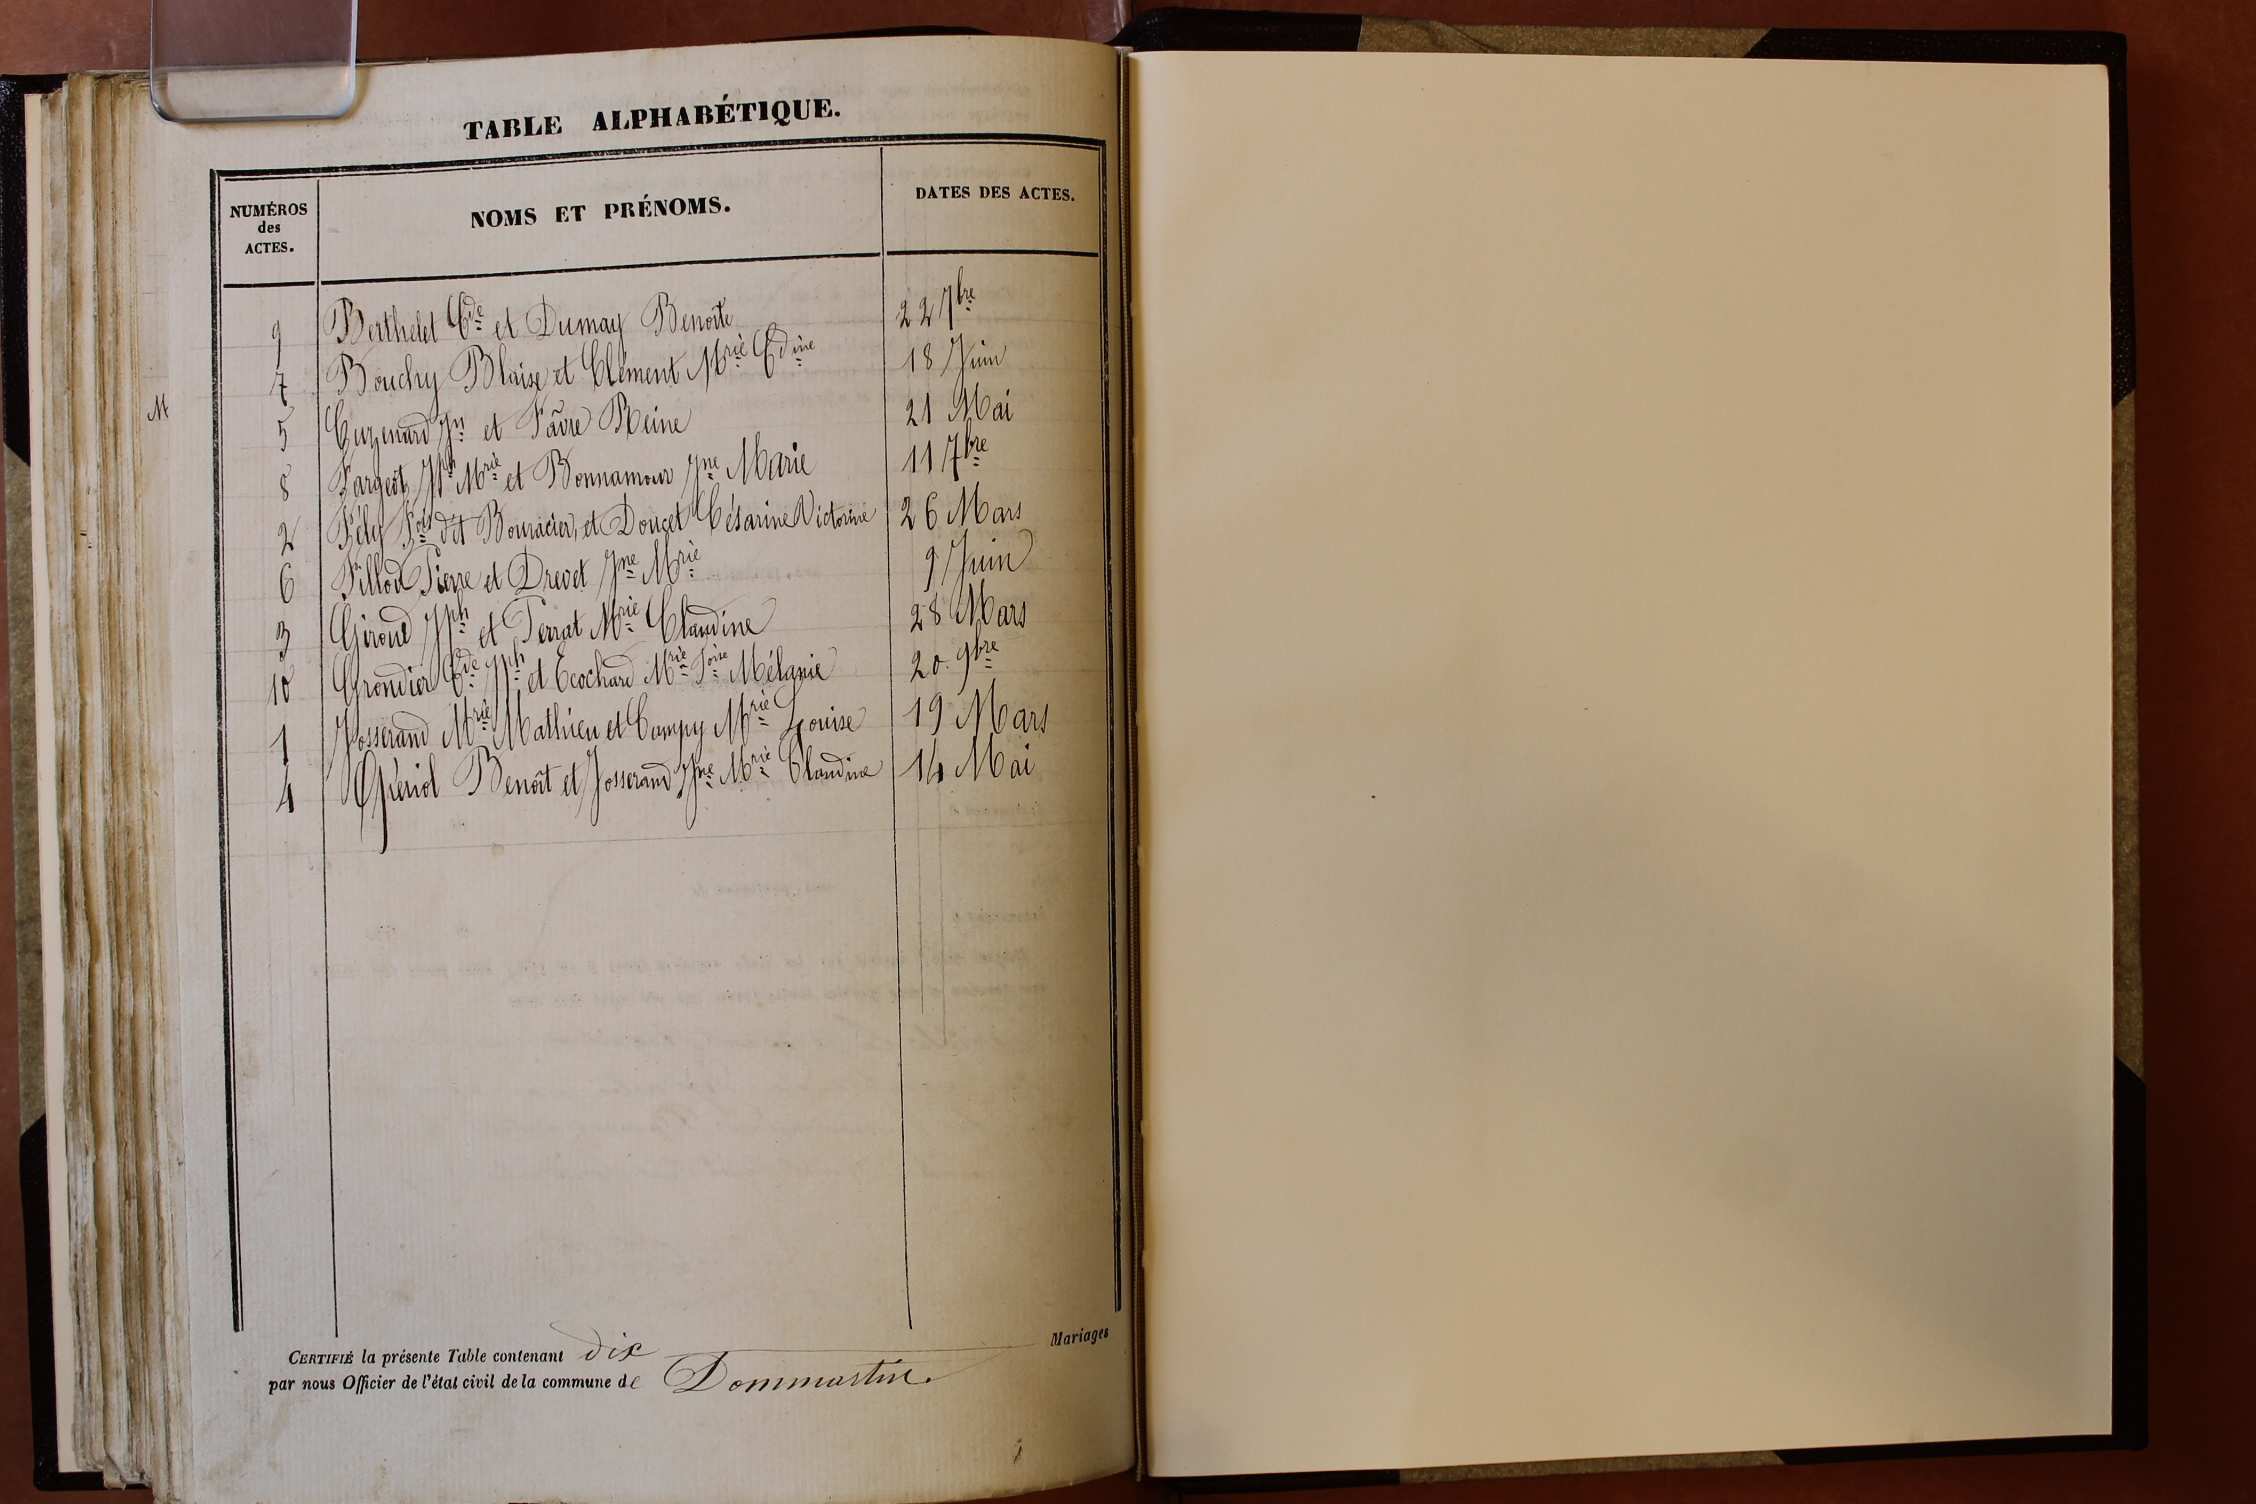 TABLE ALPHABÉTIQUE.
NUMÉROS des ACTES. NOMS ET PRÉNOMS. DATES DES ACTES.
9 Berthelet Cde et Dumay Benoite 22 7bre
7 Bouchy Blaise et Clément Mrie Cdine 18 Juin
5 Cuzenard Jn et Favre Reine 21 Mai
8 Fargeot Jph Mrie et Bonnamour Jne Marie 11 7bre
2 Fély Fois dit Bouracier, et Doucet Césarine Victorine 26 Mars
6 Fillod Pierre et Drevet Jne Mrie 9 Juin
3 Giroud Jph et Terrat Mrie Claudine 28 Mars
10 Grondier Cde Jph et Ecochard Mrie Mélanie 20. 9bre
1 Josserand Mrie Mathieu et Campy Mrie Louise 19 Mars
4 Benoît et Josserand Jne Mrie Claudine 14 Mai
M
CERTIFIÉ la présente Table contenant dix Mariages
par nous Officier de l'état civil de la commune de Dommartin.